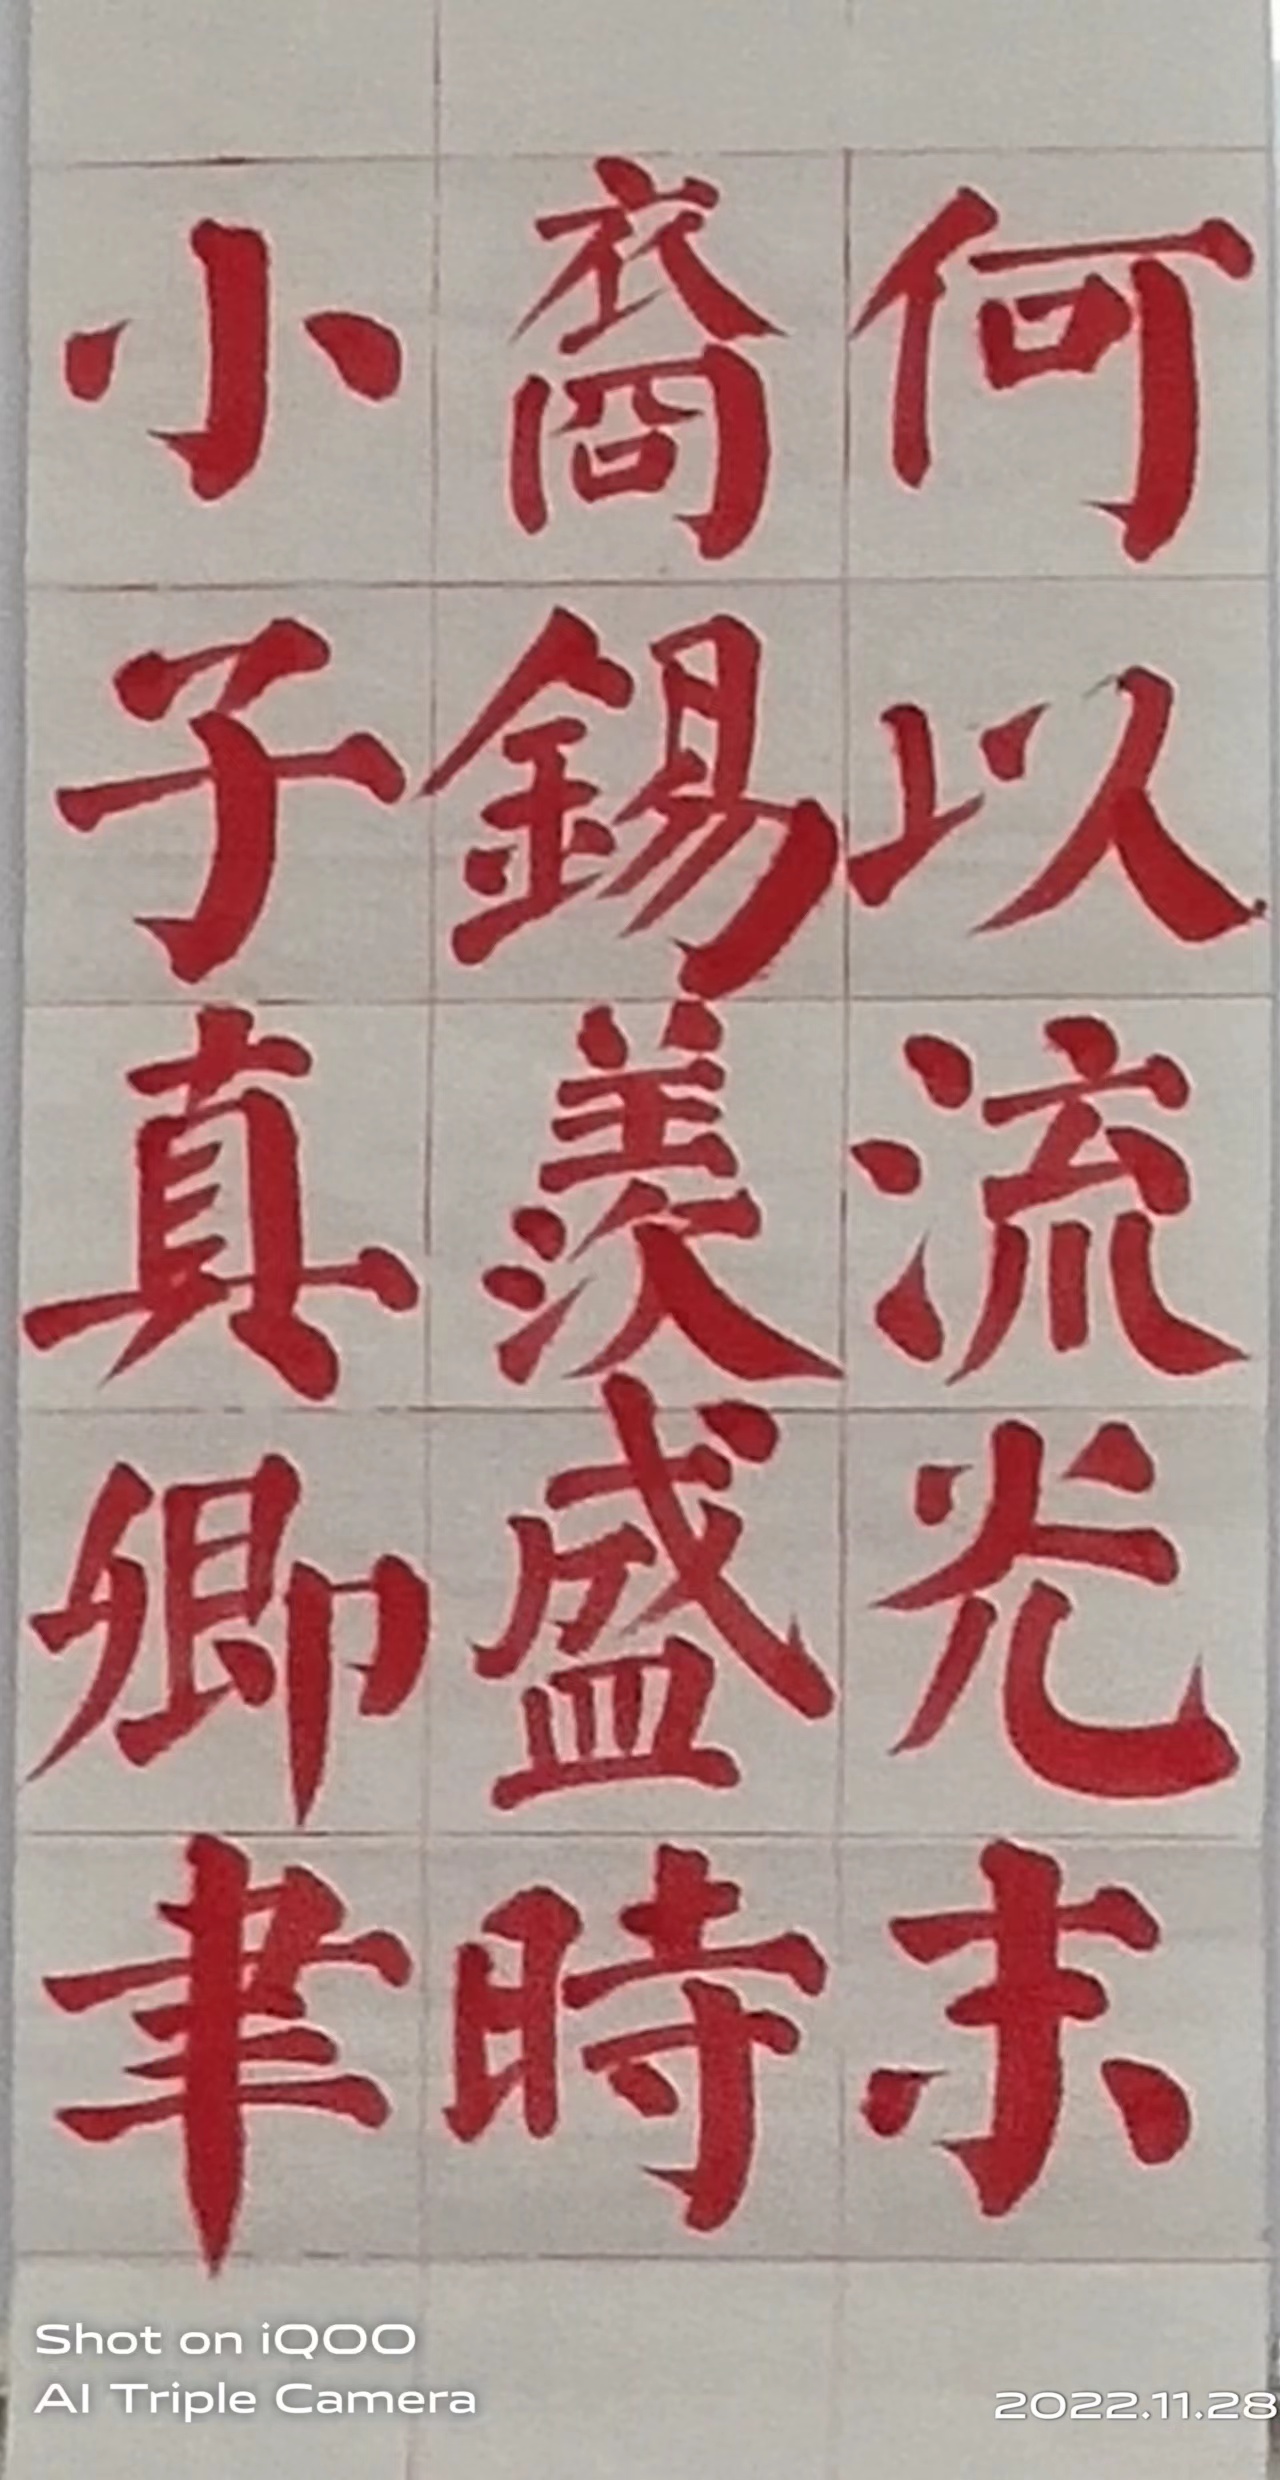 何以流光末
裔錫羨盛時
小子真卿聿
Shot on iQOO
AI Triple Camera
2022.11.28